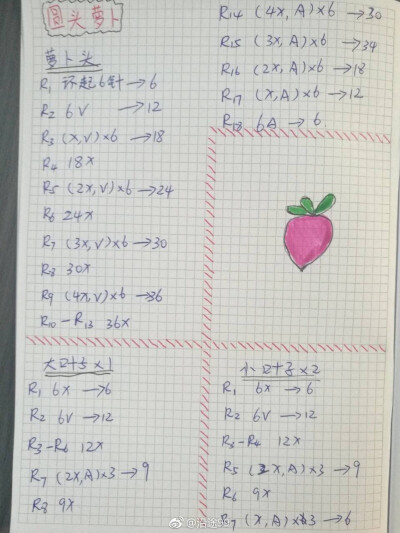 圆头萝卜
萝卜头
R1 环起6针→6
R2 6V →12
R3 (X,V)×6 →18
R4 18X
R5 (2X,V)×6→24
R6 24X
R7 (3X,V)×6→30
R8 30X
R9 (4X,V)×6→36
R10-R13 36X
R14 (4X,A)×6→30
R15 (3X,A)×6→34
R16 (2X,A)×6→18
R17 (X,A)×6→12
R18 6A → 6
大叶子×1
R1 6X→6
R2 6V→12
R3-R6 12X
R7 (2X,A)×3→9
R8 9X
小叶子×2
R1 6X→6
R2 6V→12
R3-R4 12X
R5 (2X,A)×3→9
R6 9X
R7 (X,A)×3→6